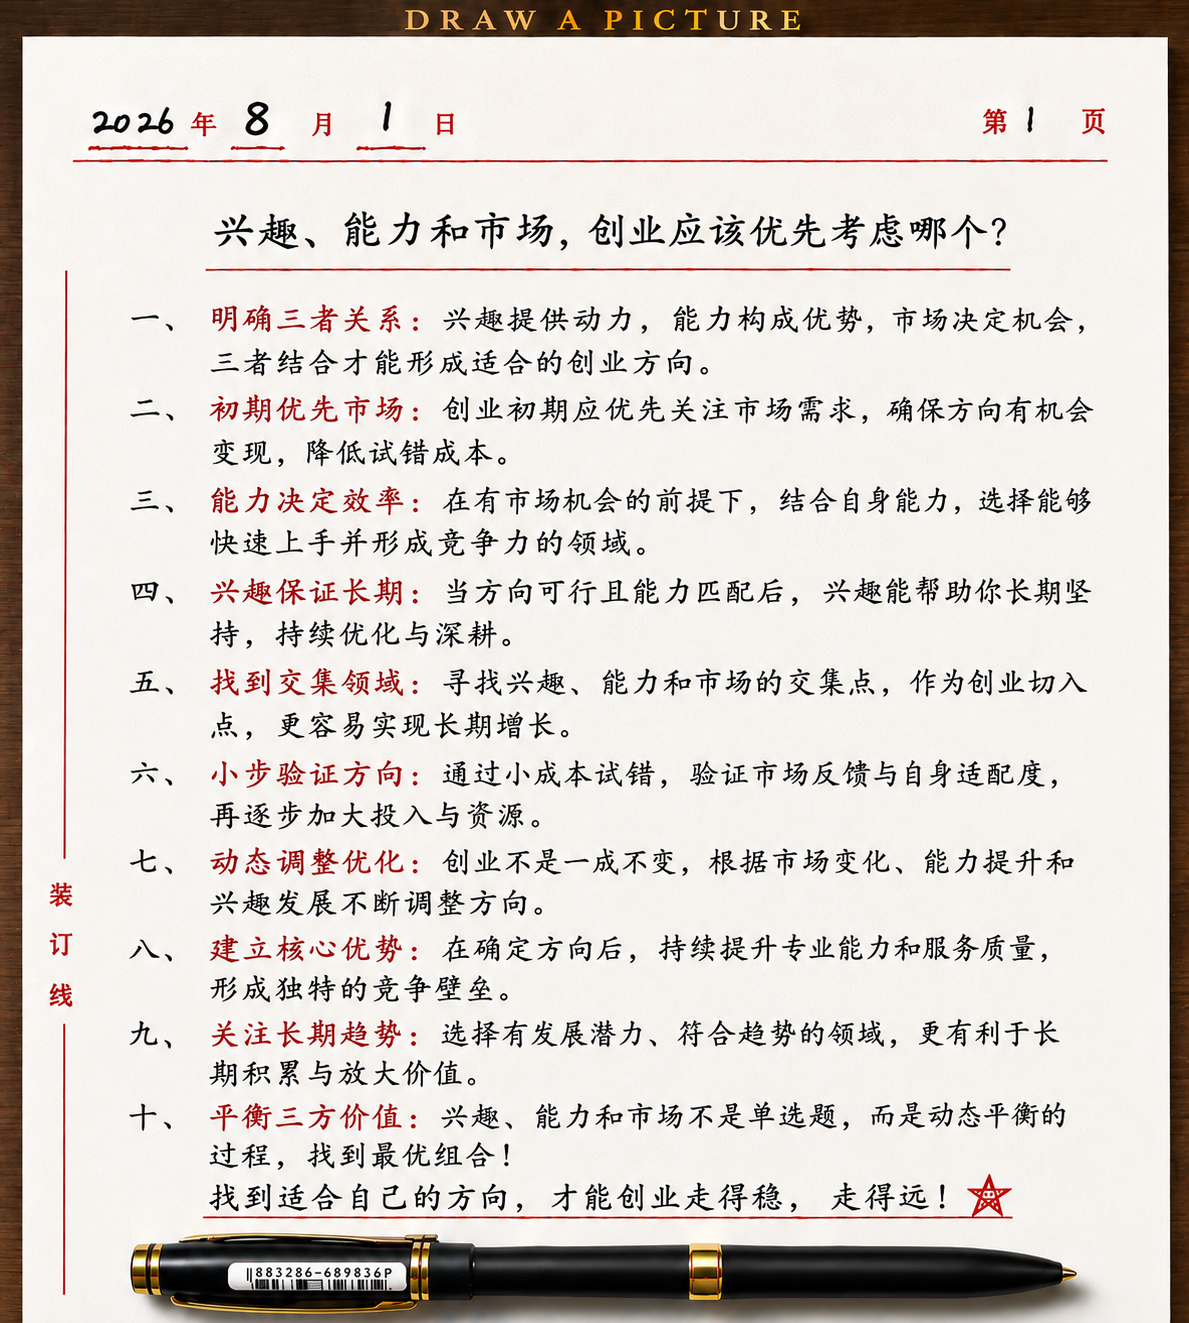 DRAW A PICTURE
2026 年 8 月 1 日 第 1 页
兴趣、能力和市场，创业应该优先考虑哪个？
一、 明确三者关系：兴趣提供动力，能力构成优势，市场决定机会，
三者结合才能形成适合的创业方向。
二、 初期优先市场：创业初期应优先关注市场需求，确保方向有机会
变现，降低试错成本。
三、 能力决定效率：在有市场机会的前提下，结合自身能力，选择能够
快速上手并形成竞争力的领域。
四、 兴趣保证长期：当方向可行且能力匹配后，兴趣能帮助你长期坚
持，持续优化与深耕。
五、 找到交集领域：寻找兴趣、能力和市场的交集点，作为创业切入
点，更容易实现长期增长。
六、 小步验证方向：通过小成本试错，验证市场反馈与自身适配度，
再逐步加大投入与资源。
七、 动态调整优化：创业不是一成不变，根据市场变化、能力提升和
兴趣发展不断调整方向。
八、 建立核心优势：在确定方向后，持续提升专业能力和服务质量，
形成独特的竞争壁垒。
九、 关注长期趋势：选择有发展潜力、符合趋势的领域，更有利于长
期积累与放大价值。
十、 平衡三方价值：兴趣、能力和市场不是单选题，而是动态平衡的
过程，找到最优组合！
找到适合自己的方向，才能创业走得稳，走得远！
装
订
线
883286-689836P